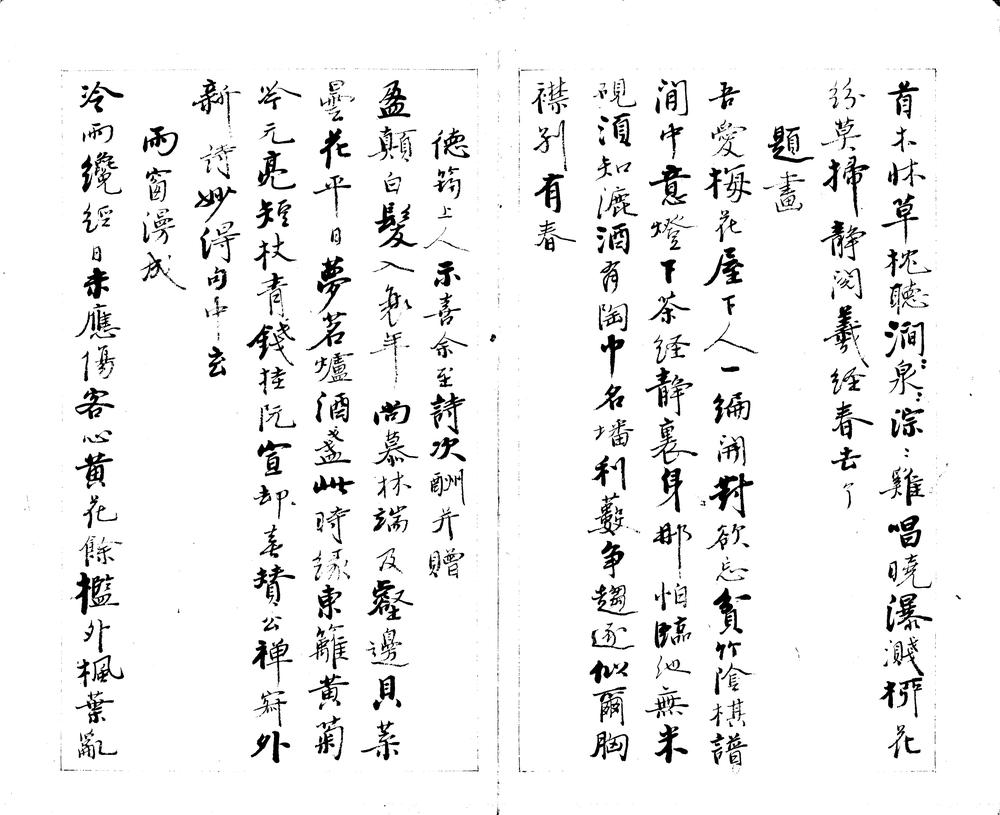 首木床草枕聽澗泉〻淙〻雞唱曉瀑濺柳花
紛莫掃靜閱羲經春去了
題畫
吾愛梅花屋下人一編開對欲忘貧竹陰棋譜
閒中意燈下茶經靜裏身那怕臨池無米
硯須知漉酒有陶巾名墦利藪爭趨逐似爾胸
襟別有春
德筠上人示喜余至詩次酬并贈
盈顛白髮入衰年尚慕林端及壑邊貝葉
曇花平日夢茗爐酒盞此時緣東籬黃菊
岑元亮短杖青錢挂阮宣却喜贊公禪寂外
新詩妙得句中玄
雨窗漫成
冷雨纔經日未應傷客心黃花餘檻外楓葉亂